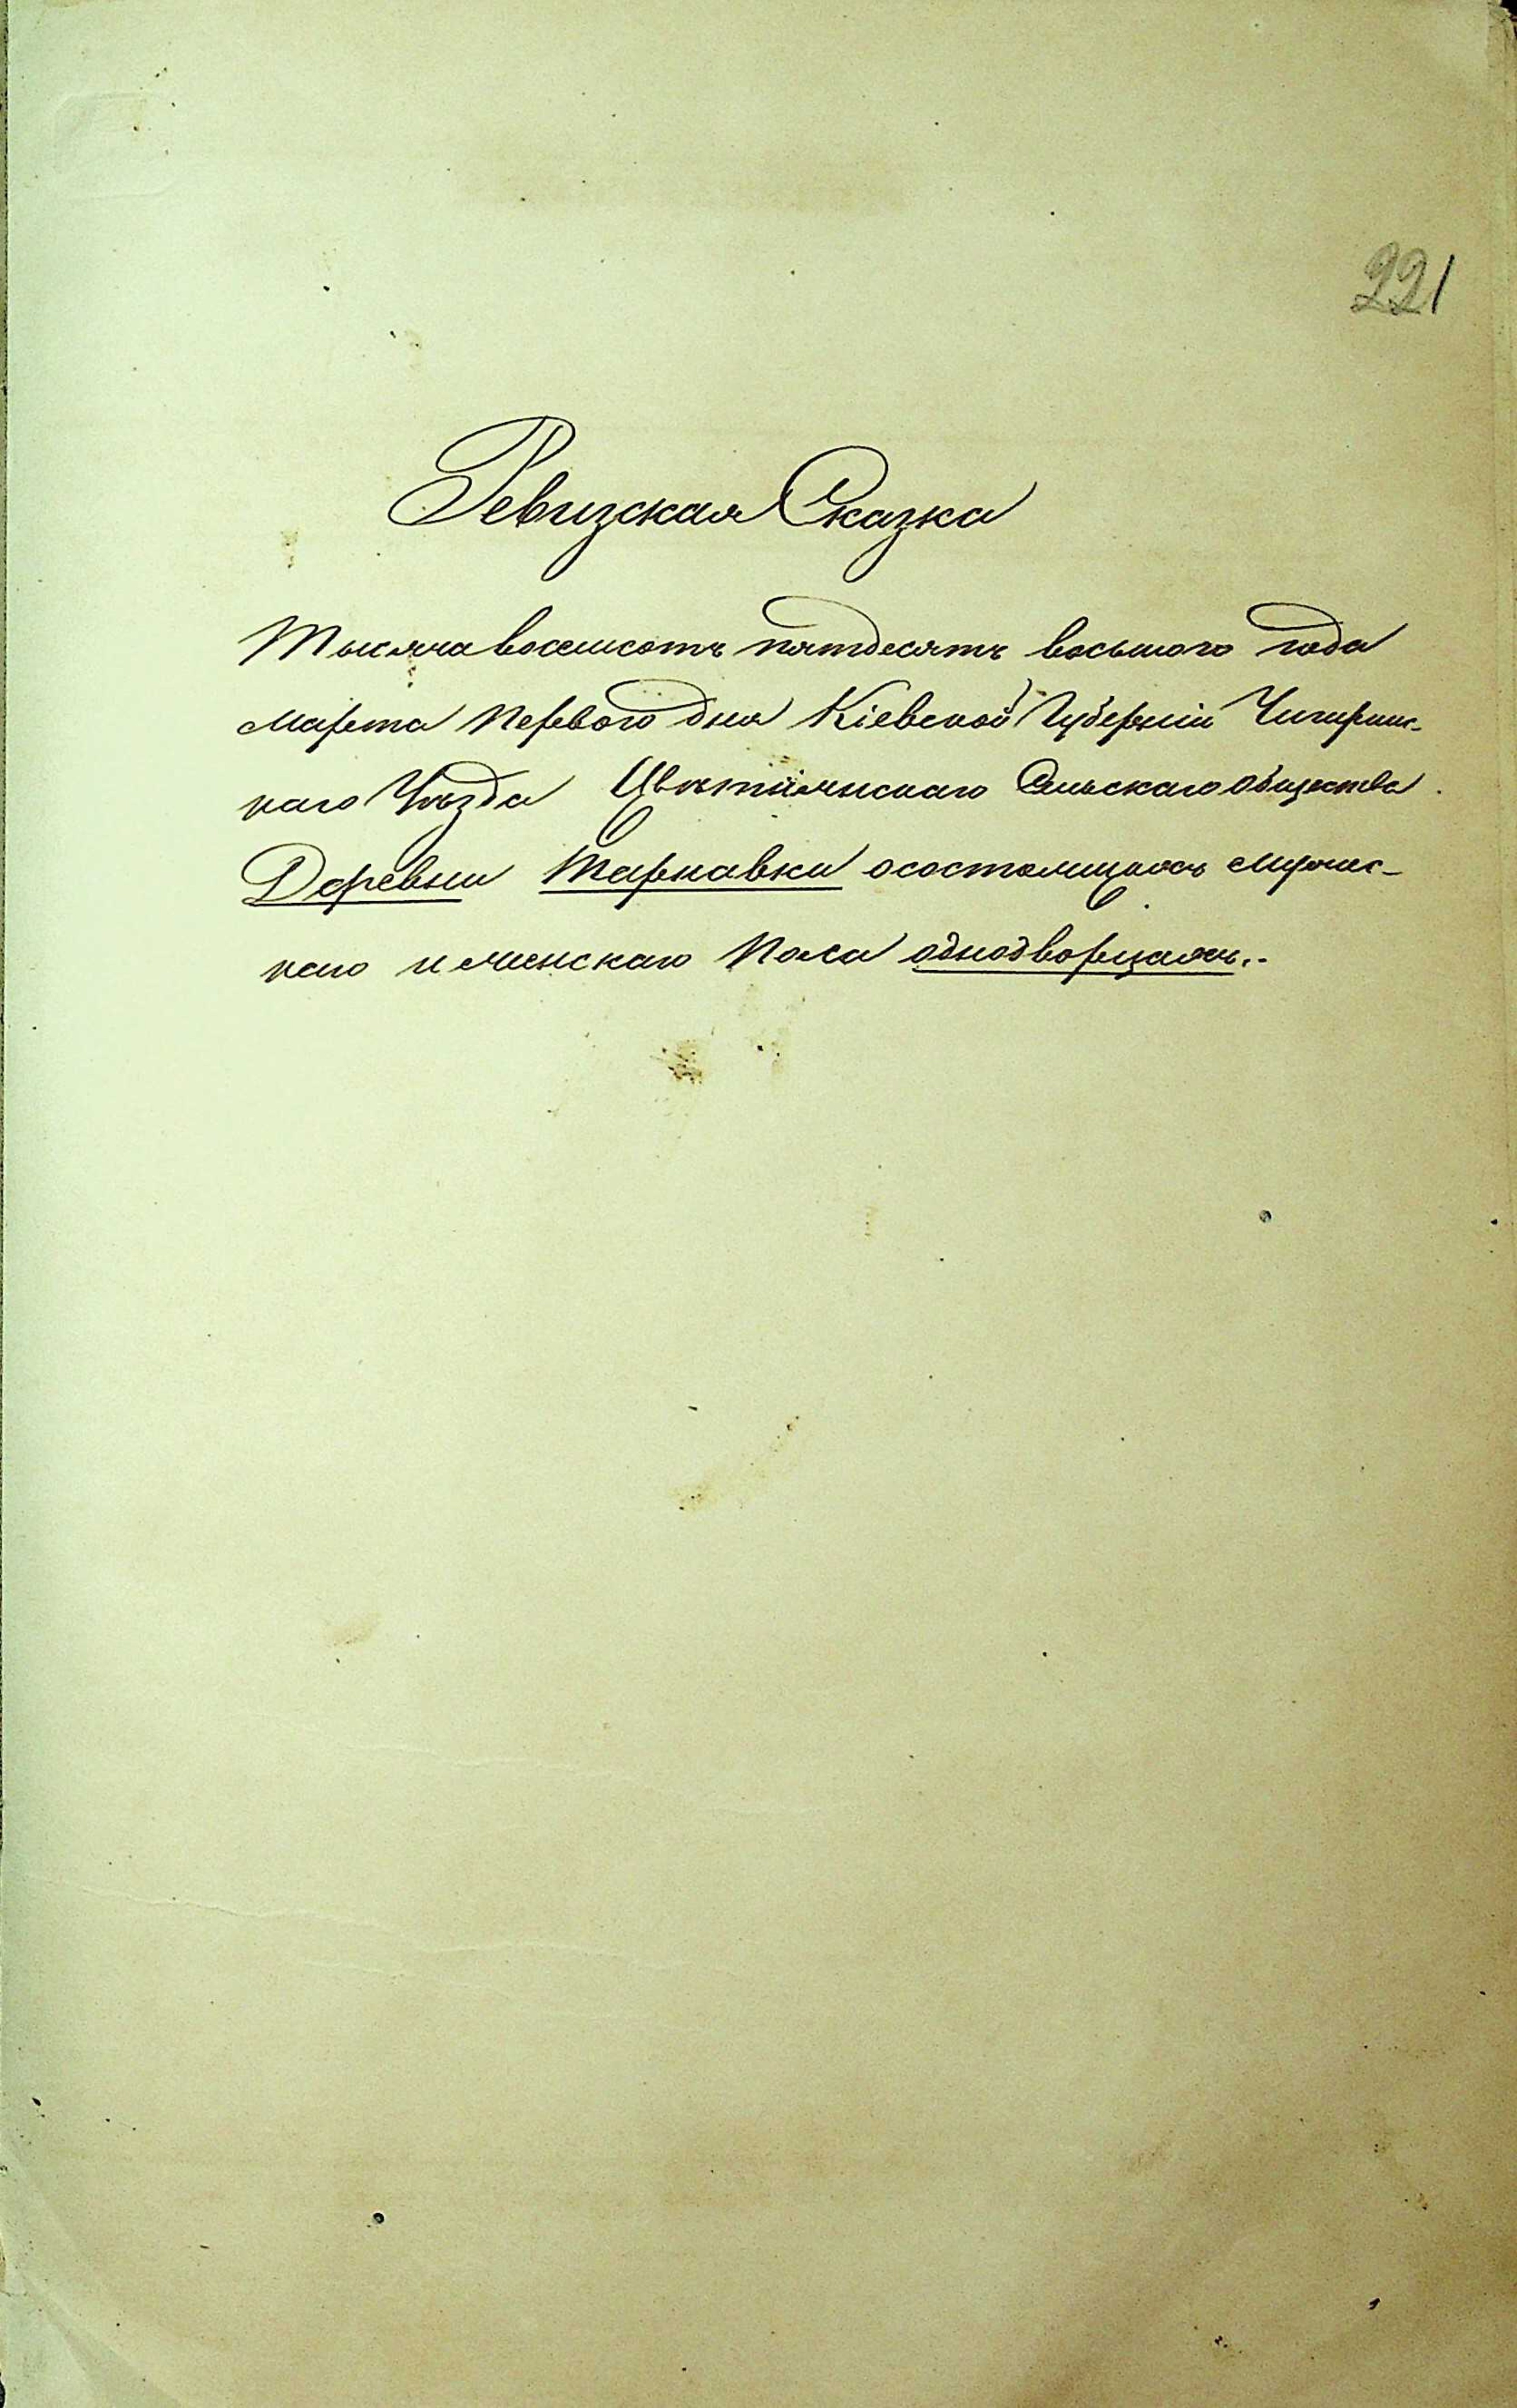 221
Ревизская Сказка
Тысяча восемсотъ пятдесятъ восьмого года
Марта Первого дня Кіевской Губерніи Чигринс-
каго Уѣзда Цвѣтнянскаго Сельскаго Общества
Деревни Тарнавки осостоящихъ мужес-
каго и женскаго Пола однодворцахъ..